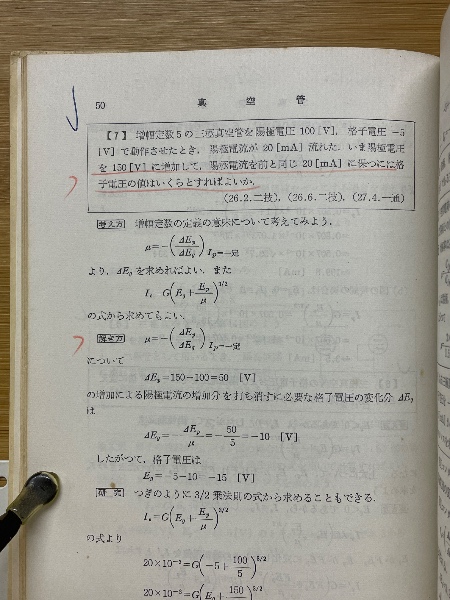 50 真空管
【7】 増幅定数5の三極真空管を陽極電圧 100 [V], 格子電圧 −5
[V] で動作させたとき, 陽極電流が 20 [mA] 流れた. いま陽極電圧
を 150 [V] に増加して, 陽極電流を前と同じ 20 [mA] に保つには格
子電圧の値はいくらとすればよいか.
(26.2.二技), (26.6.二技), (27.4.一通)
考え方 増幅定数の定義の意味について考えてみよう.
μ=−(ΔEp/ΔEg) Ip=一定
より, ΔEg を求めればよい. また
G(Eg+Ep/μ)^3/2
の式から求めてもよい.
解き方 μ=−(ΔEp/ΔEg) Ip=一定
について
ΔEp=150−100=50 [V]
の増加による陽極電流の増加分を打ち消すに必要な格子電圧の変化分 ΔEg
は
ΔEg=−ΔEp/μ=−50/5=−10 [V]
したがつて, 格子電圧は
Eg=−5−10=−15 [V]
研究 つぎのように 3/2 乗法則の式から求めることもできる.
=G(Eg+Ep/μ)^3/2
の式より
20×10⁻³=G(−5+100/5)^3/2
20×10⁻³=G(Eg+150